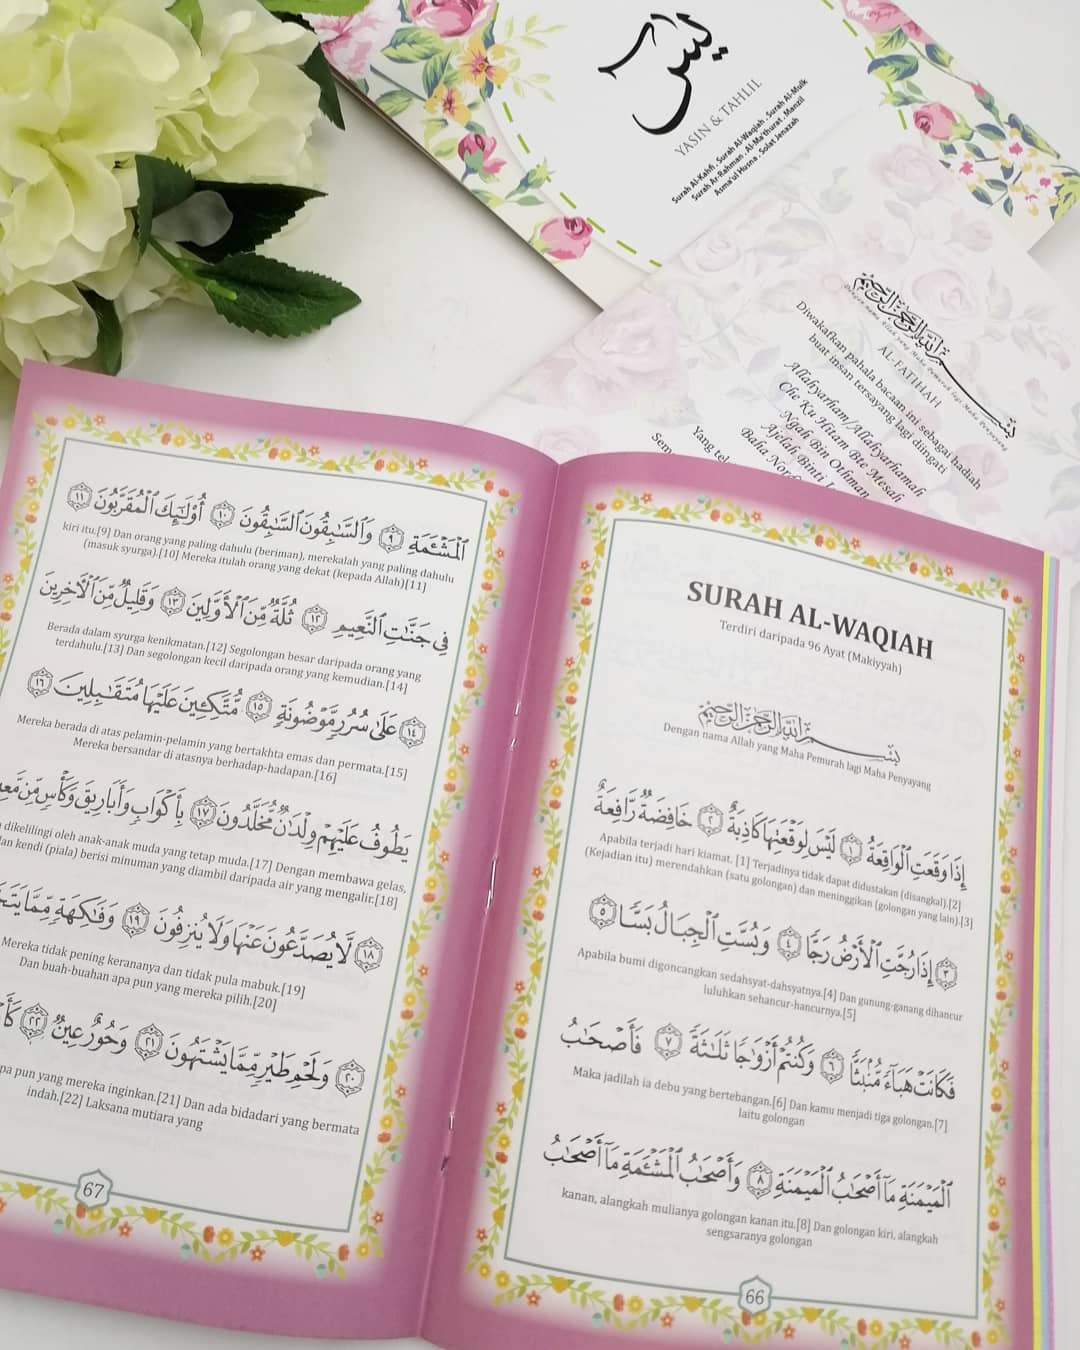 يس
YASIN & TAHLIL
Surah Al-Kahfi . Surah Al-Waqiah . Surah Al-Mulk
Surah Ar-Rahman . Al-Ma'thurat . Manzil
Asma'ul Husna . Solat Jenazah
بسم الله الرحمن الرحيم
Dengan nama Allah yang Maha Pemurah lagi Maha Penyayang
AL-FATIHAH
Diwakafkan pahala bacaan ini sebagai hadiah
buat insan tersayang lagi diingati
Allahyarham/Allahyarhamah
Che Ku Hitam Bte Mesah
Ngah Bin Othman
Ajelah Binti
Baha Nor
Yang tel
Sem
SURAH AL-WAQIAH
Terdiri daripada 96 Ayat (Makiyyah)
بسم الله الرحمن الرحيم
Dengan nama Allah yang Maha Pemurah lagi Maha Penyayang
إِذَا وَقَعَتِ ٱلْوَاقِعَةُ ١ لَيْسَ لِوَقْعَتِهَا كَاذِبَةٌ ٢ خَافِضَةٌ رَّافِعَةٌ
Apabila terjadi hari kiamat. [1] Terjadinya tidak dapat didustakan (disangkal).[2]
(Kejadian itu) merendahkan (satu golongan) dan meninggikan (golongan yang lain).[3]
٣ إِذَا رُجَّتِ ٱلْأَرْضُ رَجًّا ٤ وَبُسَّتِ ٱلْجِبَالُ بَسًّا ٥
Apabila bumi digoncangkan sedahsyat-dahsyatnya.[4] Dan gunung-ganang dihancur
luluhkan sehancur-hancurnya.[5]
فَكَانَتْ هَبَآءً مُّنۢبَثًّا ٦ وَكُنتُمْ أَزْوَٰجًا ثَلَٰثَةً ٧ فَأَصْحَٰبُ
Maka jadilah ia debu yang bertebangan.[6] Dan kamu menjadi tiga golongan.[7]
Iaitu golongan
ٱلْمَيْمَنَةِ مَآ أَصْحَٰبُ ٱلْمَيْمَنَةِ ٨ وَأَصْحَٰبُ ٱلْمَشْـَٔمَةِ مَآ أَصْحَٰبُ
kanan, alangkah mulianya golongan kanan itu.[8] Dan golongan kiri, alangkah
sengsaranya golongan
66
ٱلْمَشْـَٔمَةِ ٩ وَٱلسَّٰبِقُونَ ٱلسَّٰبِقُونَ ١٠ أُو۟لَٰٓئِكَ ٱلْمُقَرَّبُونَ ١١
kiri itu.[9] Dan orang yang paling dahulu (beriman), merekalah yang paling dahulu
(masuk syurga).[10] Mereka itulah orang yang dekat (kepada Allah)[11]
فِى جَنَّٰتِ ٱلنَّعِيمِ ١٢ ثُلَّةٌ مِّنَ ٱلْأَوَّلِينَ ١٣ وَقَلِيلٌ مِّنَ ٱلْءَاخِرِينَ
Berada dalam syurga kenikmatan.[12] Segolongan besar daripada orang yang
terdahulu.[13] Dan segolongan kecil daripada orang yang kemudian.[14]
١٤ عَلَىٰ سُرُرٍ مَّوْضُونَةٍ ١٥ مُّتَّكِـِٔينَ عَلَيْهَا مُتَقَٰبِلِينَ ١٦
Mereka berada di atas pelamin-pelamin yang bertakhta emas dan permata.[15]
Mereka bersandar di atasnya berhadap-hadapan.[16]
يَطُوفُ عَلَيْهِمْ وِلْدَٰنٌ مُّخَلَّدُونَ ١٧ بِأَكْوَابٍ وَأَبَارِيقَ وَكَأْسٍ مِّن مَّعِ
dikelilingi oleh anak-anak muda yang tetap muda.[17] Dengan membawa gelas,
dan kendi (piala) berisi minuman yang diambil daripada air yang mengalir.[18]
١٨ لَّا يُصَدَّعُونَ عَنْهَا وَلَا يُنزِفُونَ ١٩ وَفَٰكِهَةٍ مِّمَّا يَتَخَ
Mereka tidak pening kerananya dan tidak pula mabuk.[19]
Dan buah-buahan apa pun yang mereka pilih.[20]
٢٠ وَلَحْمِ طَيْرٍ مِّمَّا يَشْتَهُونَ ٢١ وَحُورٌ عِينٌ ٢٢ كَأَ
pa pun yang mereka inginkan.[21] Dan ada bidadari yang bermata
indah.[22] Laksana mutiara yang
67